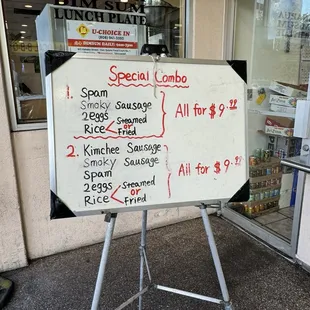 LUNCH PLATE
U-CHOICE IN
Special Combo
1. Spam
Smoky Sausage
2 eggs
Rice < Steamed or Fried
All for $9.
2. Kimchee Sausage
Smoky Sausage
Spam
2 eggs
Rice < Steamed or Fried
All for $9.